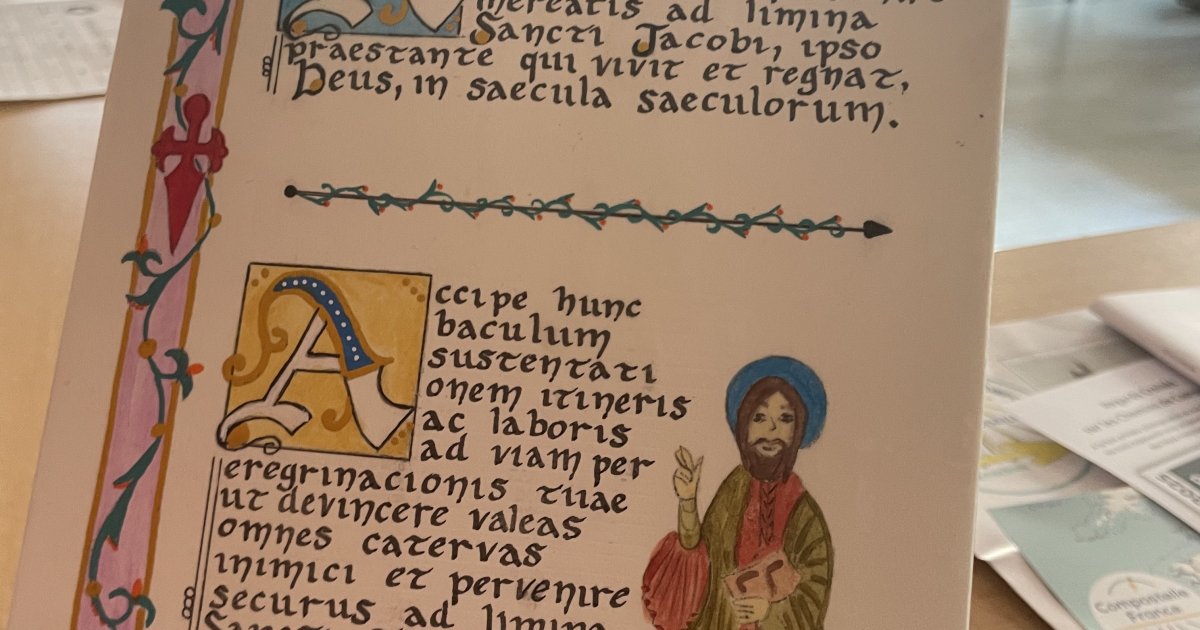 merearis ad limina
Sancti Jacobi, ipso
praestante qui vivit et regnat,
Deus, in saecula saeculorum.
Accipe hunc
baculum
sustentati
onem itineris
ac laboris
ad viam per
eregrinacionis tuae
ut devincere valeas
omnes catervas
inimici et pervenire
securus ad limina
Compostelle
France